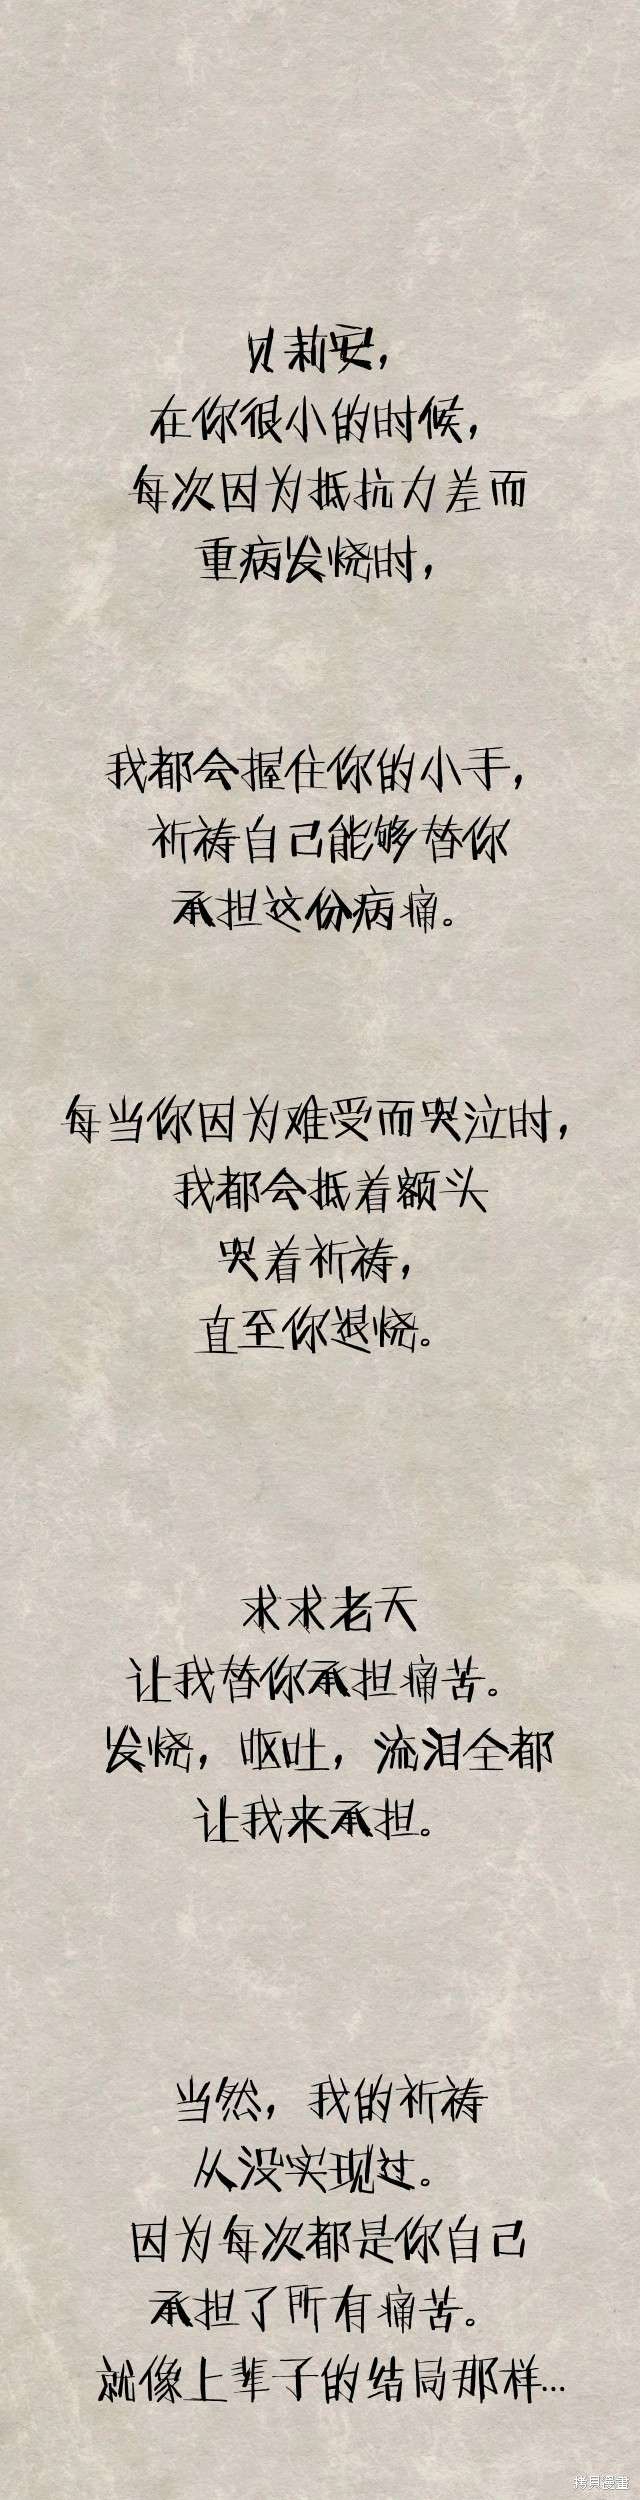 贝莉安，
在你很小的时候，
每次因为抵抗力差而
重病发烧时，
我都会握住你的小手，
祈祷自己能够替你
承担这份病痛。
每当你因为难受而哭泣时，
我都会抵着额头
哭着祈祷，
直至你退烧。
求求老天
让我替你承担痛苦。
发烧，呕吐，流泪全都
让我来承担。
当然，我的祈祷
从没实现过。
因为每次都是你自己
承担了所有痛苦。
就像上辈子的结局那样...
拷貝漫畫